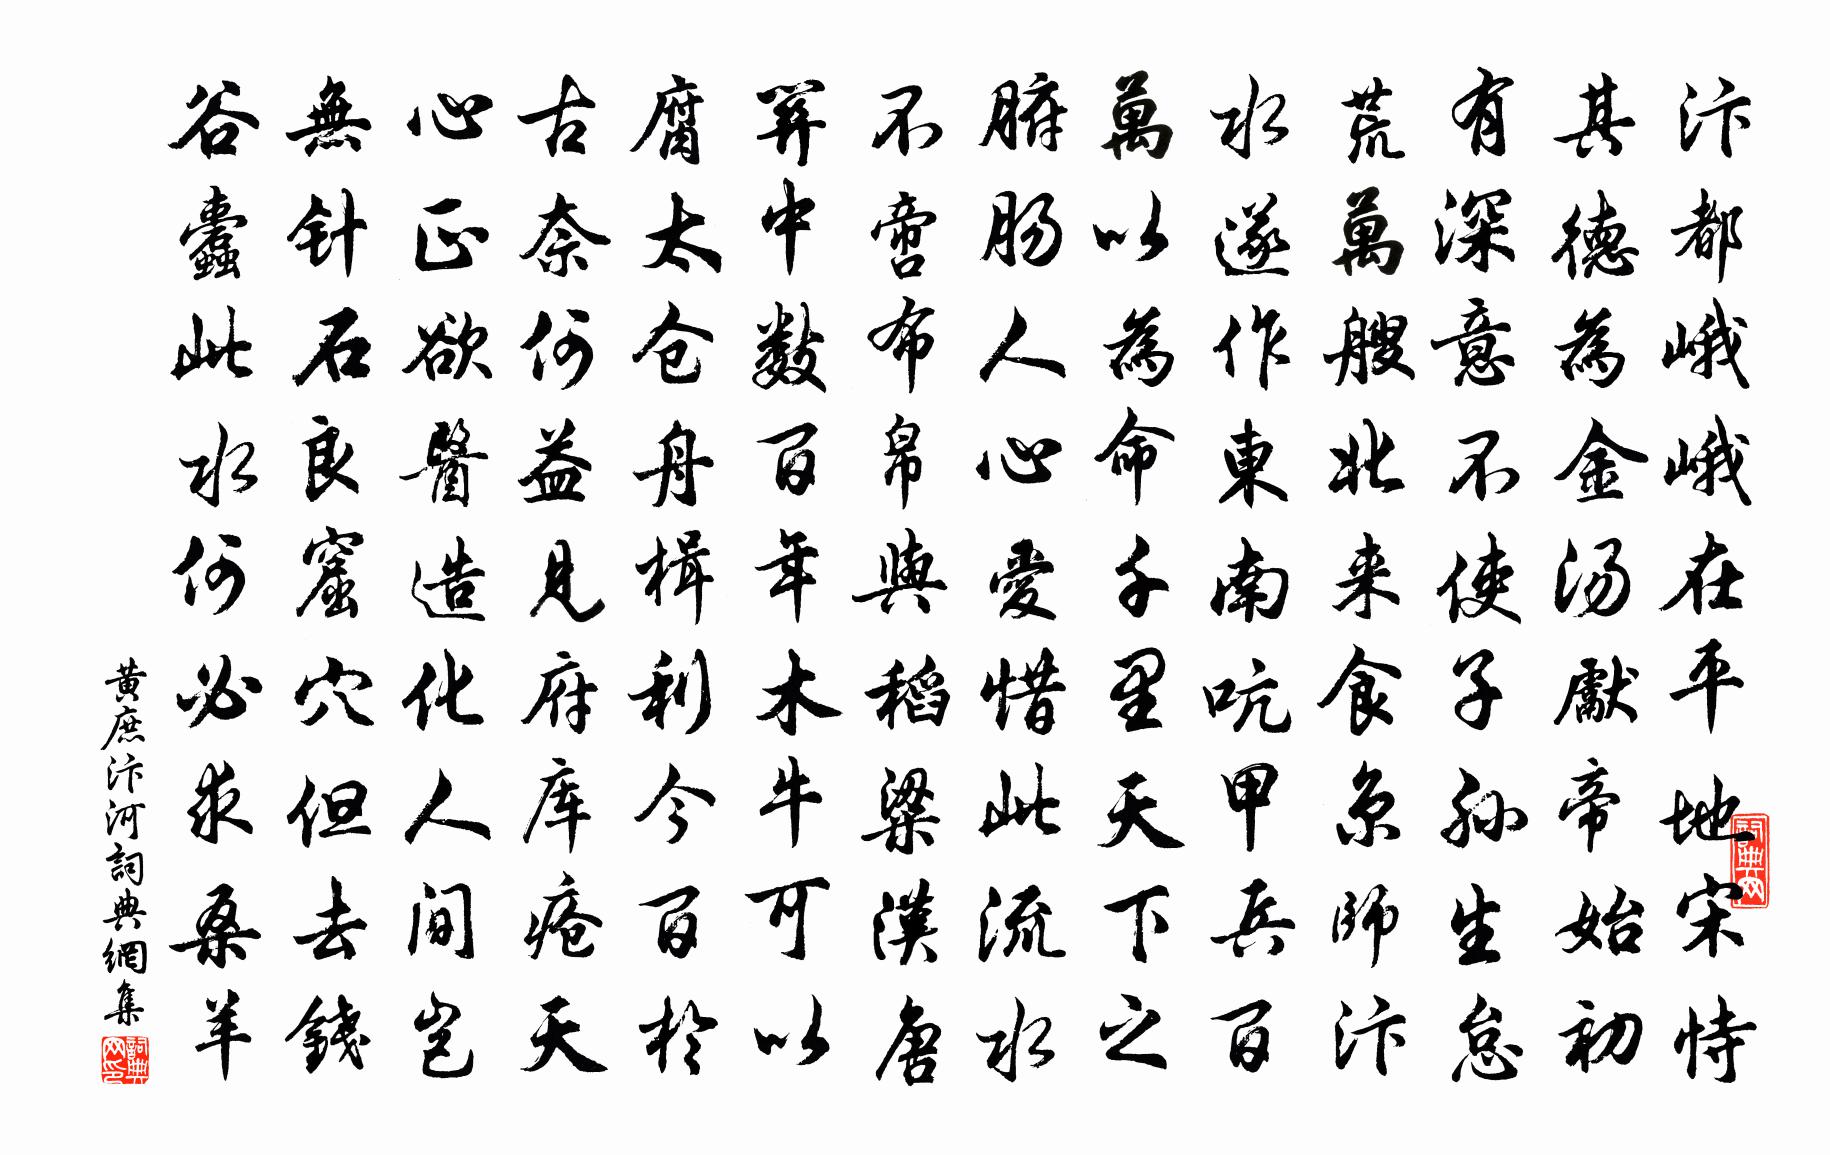 汴都峨峨在平地宋恃
其德為金汤獻帝始初
有深意不使子孙生怠
荒萬艘北来食京師汴
水遂作東南吭甲兵百
萬以為命千里天下之
腑肠人心愛惜此流水
不啻布帛與稻粱漢唐
関中数百年木牛可以
腐太仓舟楫利今百於
古奈何益見府库疮天
心正欲醫造化人间岂
無针石良窟穴但去錢
谷蠹此水何必求桑羊
黄庶汴河詞典網集
詞典网
詞典网印